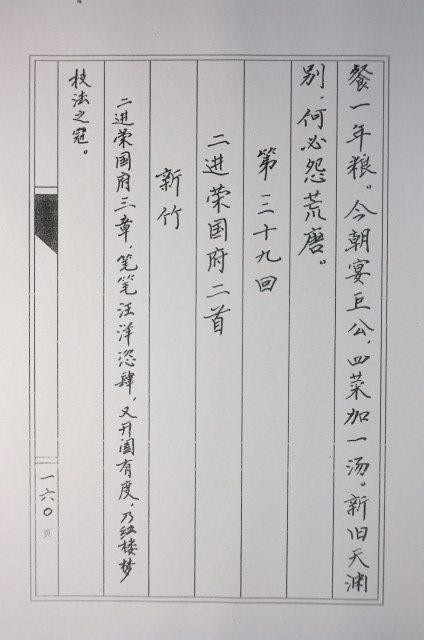 餐一年粮。今朝宴巨公，四菜加一汤。新旧天渊
别，何必怨荒唐。
第三十九回
二进荣国府二首
新竹
二进荣国府三章，笔笔汪洋恣肆，又开阖有度，乃红楼梦
技法之冠。
一六〇页